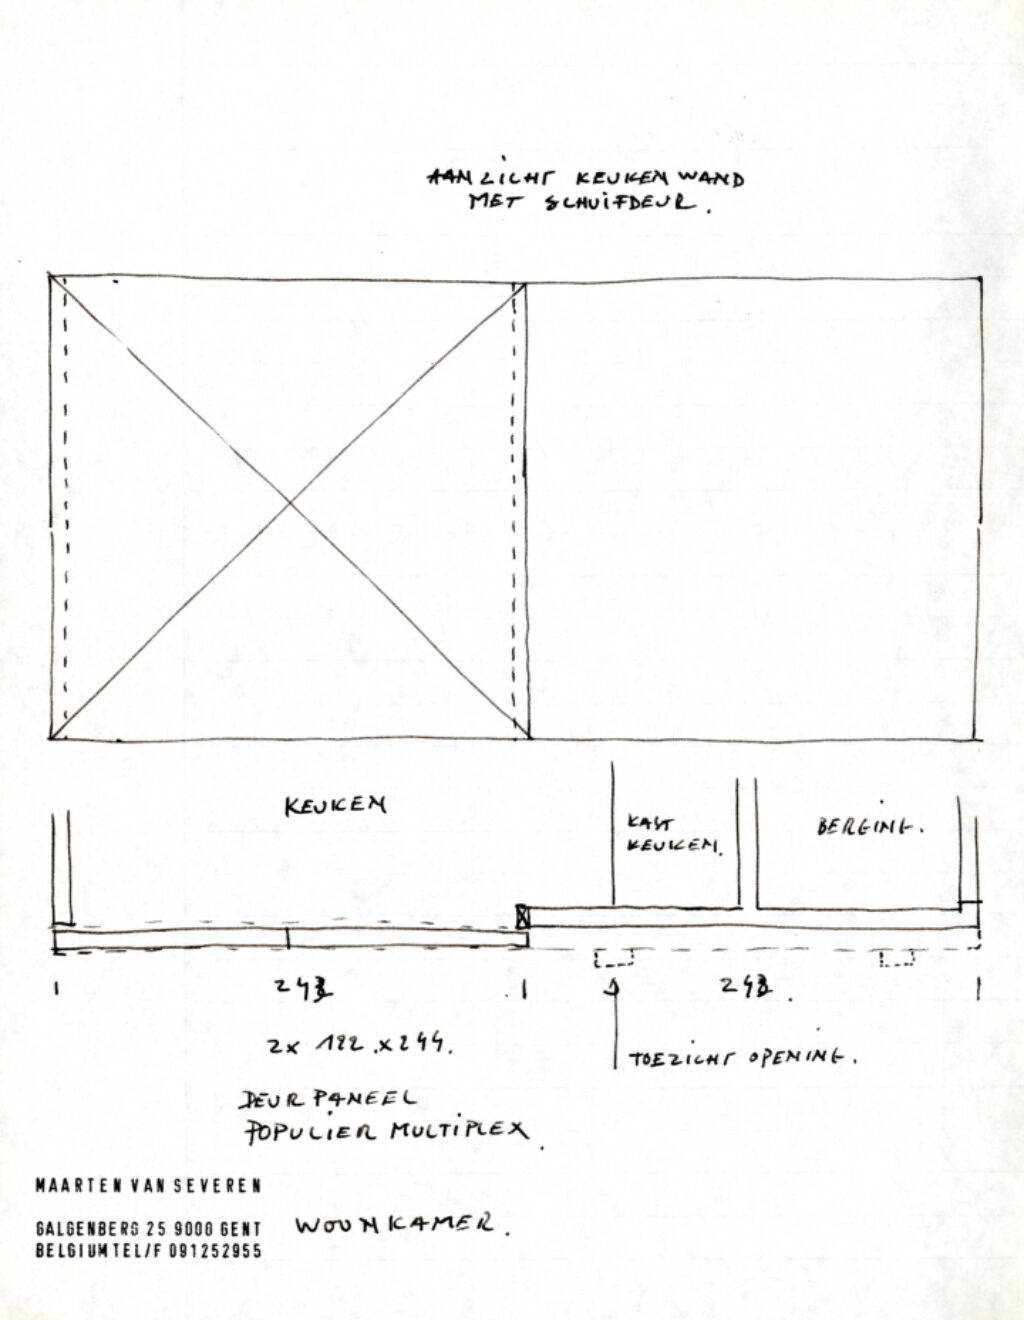 AANZICHT KEUKENWAND
MET SCHUIFDEUR.
KEUKEN
KAST
KEUKEN.
BERGING.
243
243.
2x 122.x244.
TOEZICHT OPENING.
DEURPANEEL
POPULIER MULTIPLEX.
MAARTEN VAN SEVEREN
GALGENBERG 25 9000 GENT
BELGIUM TEL/F 091252955
WOONKAMER.